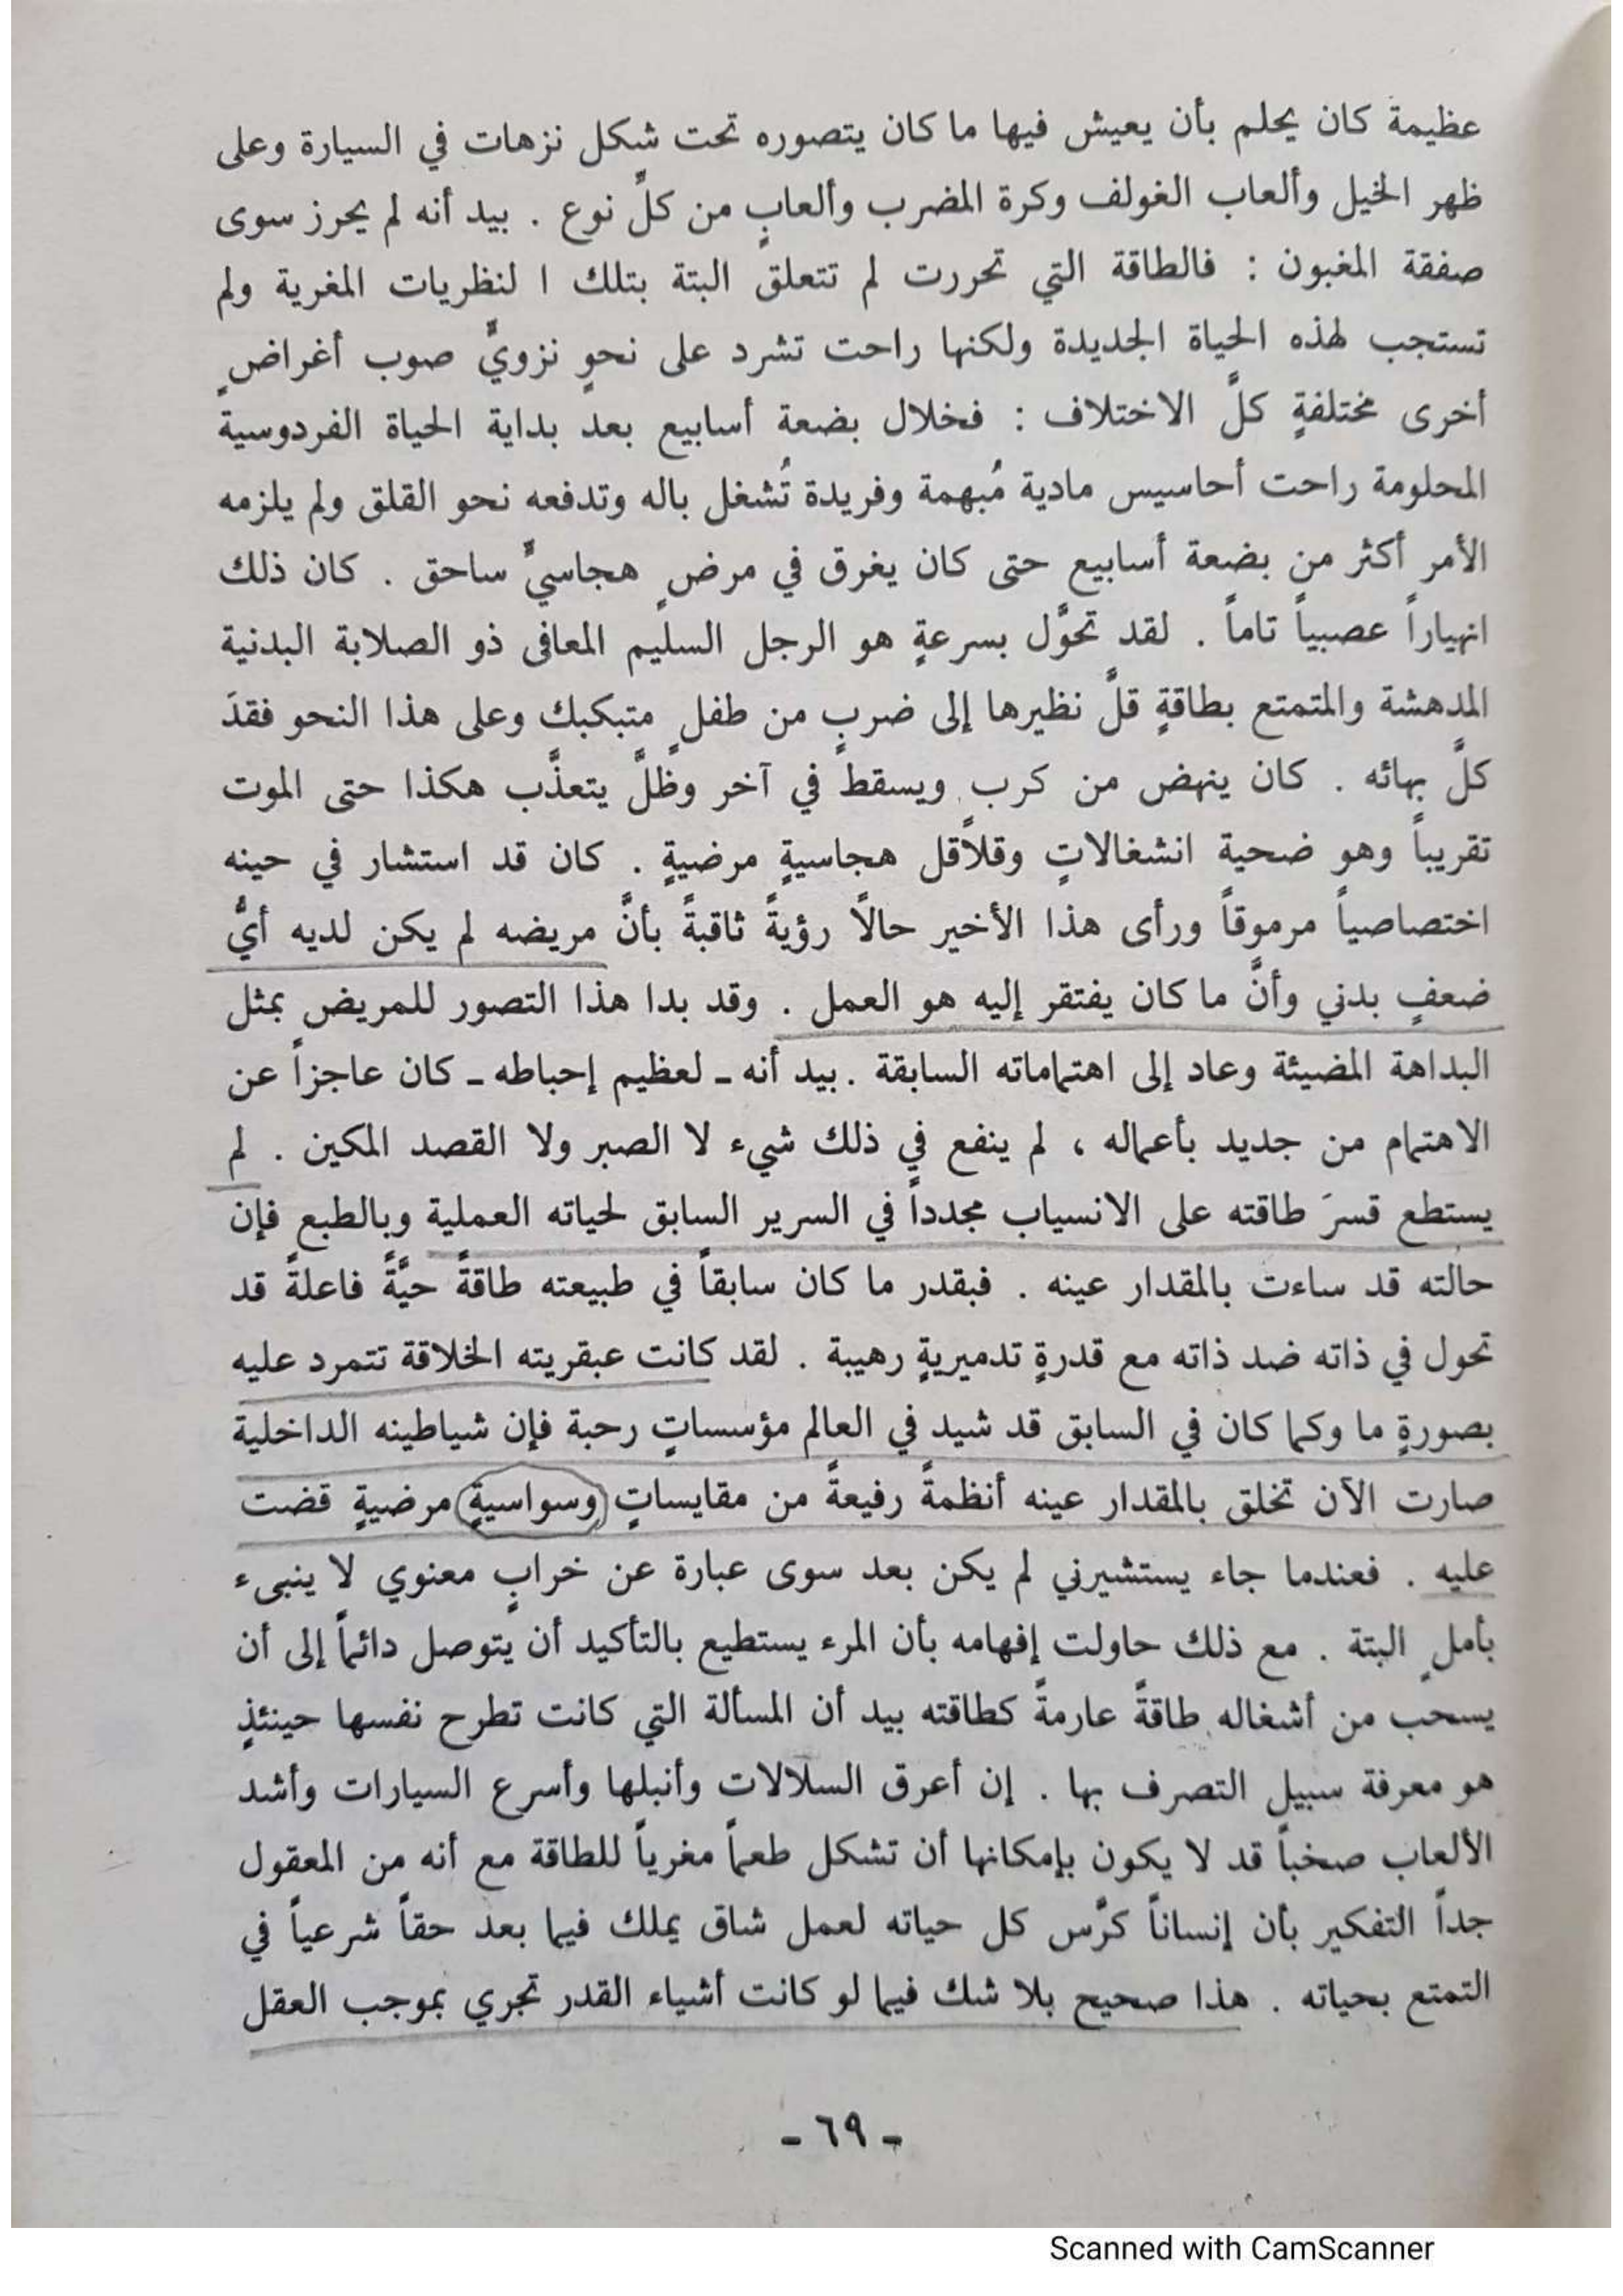 عظيمة كان يحلم بأن يعيش فيها ما كان يتصوره تحت شكل نزهات في السيارة وعلى
ظهر الخيل وألعاب الغولف وكرة المضرب وألعابٍ من كلِّ نوع . بيد أنه لم يحرز سوى
صفقة المغبون : فالطاقة التي تحررت لم تتعلق البتة بتلك ا لنظريات المغرية ولم
تستجب لهذه الحياة الجديدة ولكنها راحت تشرد على نحوٍ نزويٍّ صوب أغراضٍ
أخرى مختلفةٍ كلَّ الاختلاف : فخلال بضعة أسابيع بعد بداية الحياة الفردوسية
المحلومة راحت أحاسيس مادية مُبهمة وفريدة تُشغل باله وتدفعه نحو القلق ولم يلزمه
الأمر أكثر من بضعة أسابيع حتى كان يغرق في مرضٍ هجاسيٍّ ساحق . كان ذلك
انهياراً عصبياً تاماً . لقد تحوَّل بسرعةٍ هو الرجل السليم المعافى ذو الصلابة البدنية
المدهشة والمتمتع بطاقةٍ قلَّ نظيرها إلى ضربٍ من طفلٍ متبكبك وعلى هذا النحو فقدَ
كلَّ بهائه . كان ينهض من كربٍ ويسقط في آخر وظلَّ يتعذَّب هكذا حتى الموت
تقريباً وهو ضحية انشغالاتٍ وقلاقل هجاسيةٍ مرضيةٍ . كان قد استشار في حينه
اختصاصياً مرموقاً ورأى هذا الأخير حالًا رؤيةً ثاقبةً بأنَّ مريضه لم يكن لديه أيُّ
ضعفٍ بدني وأنَّ ما كان يفتقر إليه هو العمل . وقد بدا هذا التصور للمريض بمثل
البداهة المضيئة وعاد إلى اهتماماته السابقة . بيد أنه ـ لعظيم إحباطه ـ كان عاجزاً عن
الاهتمام من جديد بأعماله ، لم ينفع في ذلك شيء لا الصبر ولا القصد المكين . لم
يستطع قسرَ طاقته على الانسياب مجدداً في السرير السابق لحياته العملية وبالطبع فإن
حالته قد ساءت بالمقدار عينه . فبقدر ما كان سابقاً في طبيعته طاقةً حيَّةً فاعلةً قد
تحول في ذاته ضد ذاته مع قدرةٍ تدميريةٍ رهيبة . لقد كانت عبقريته الخلاقة تتمرد عليه
بصورةٍ ما وكما كان في السابق قد شيد في العالم مؤسساتٍ رحبة فإن شياطينه الداخلية
صارت الآن تخلق بالمقدار عينه أنظمةً رفيعةً من مقايساتٍ وسواسيةٍ مرضيةٍ قضت
عليه . فعندما جاء يستشيرني لم يكن بعد سوى عبارة عن خرابٍ معنوي لا ينبىء
بأملٍ البتة . مع ذلك حاولت إفهامه بأن المرء يستطيع بالتأكيد أن يتوصل دائماً إلى أن
يسحب من أشغاله طاقةً عارمةً كطاقته بيد أن المسألة التي كانت تطرح نفسها حينئذٍ
هو معرفة سبيل التصرف بها . إن أعرق السلالات وأنبلها وأسرع السيارات وأشد
الألعاب صخباً قد لا يكون بإمكانها أن تشكل طعماً مغرياً للطاقة مع أنه من المعقول
جداً التفكير بأن إنساناً كرَّس كل حياته لعمل شاق يملك فيما بعد حقاً شرعياً في
التمتع بحياته . هذا صحيح بلا شك فيما لو كانت أشياء القدر تجري بموجب العقل
ـ ٦٩ ـ
Scanned with CamScanner